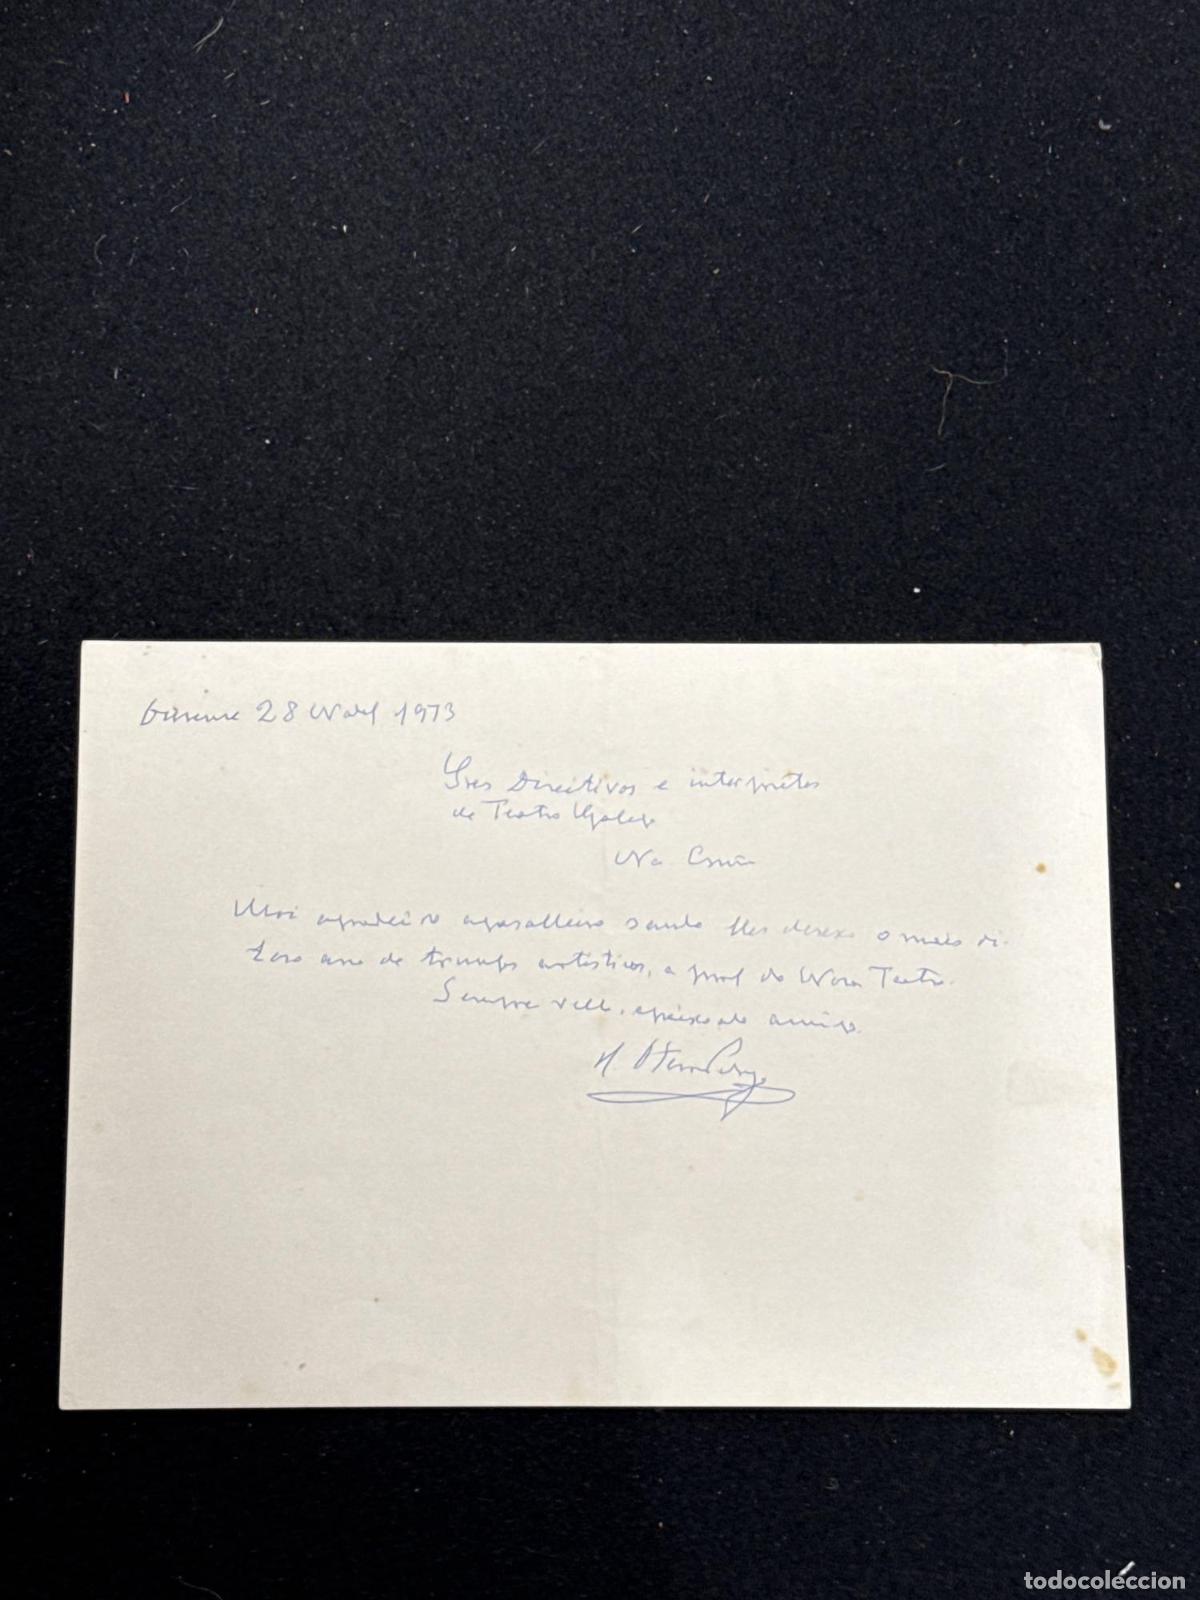 Ourense 28 Nadal 1973
Sres Directivos e interpretes
de Teatro Galego
Na Cruña
Moi agradeido agasalleiro saudo lles desexo o mais di-
toso ano de trunfos artísticos, a prol do Noso Teatro.
Sempre vello, amigo.
R. Otero Pedrayo
todocoleccion